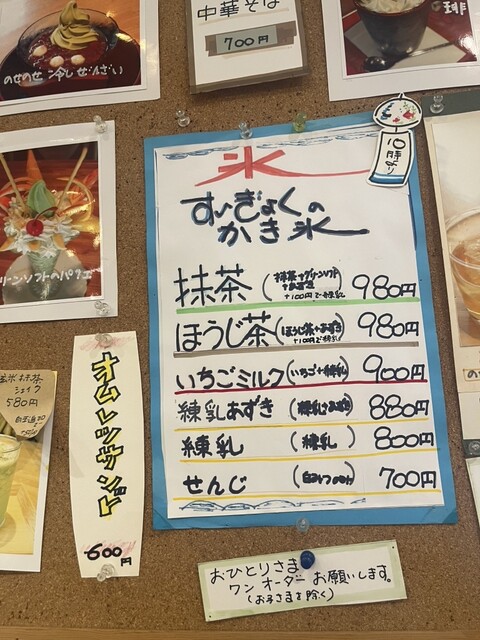 中華そば
700円
のせのせ冷しぜんざい
氷
10時より
すいぎょくの
かき氷
抹茶(抹茶+グリーンソフト+あずき +100円で練乳) 980円
ほうじ茶(ほうじ茶+あずき +100円で練乳) 980円
いちごミルク(いちご+練乳) 900円
練乳あずき(練乳+あずき) 880円
練乳(練乳) 800円
せんじ 700円
リーンソフトのパフェ
抹茶
シェイク
580円
オムレツサンド
600円
おひとりさま
ワンオーダーお願いします。
(お子さまを除く)